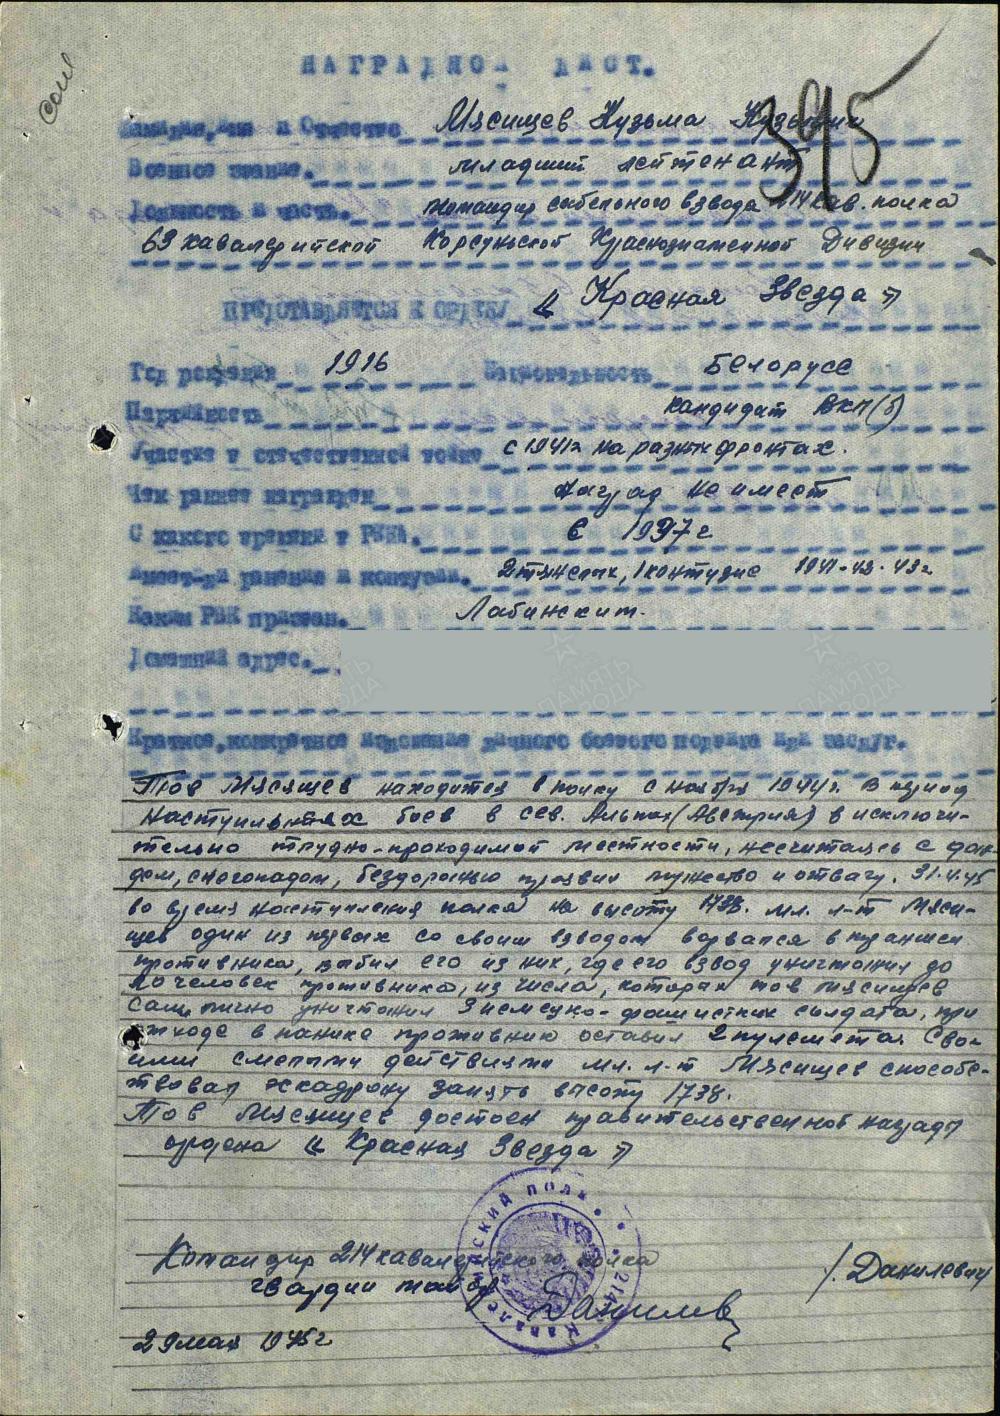 НАГРАДНОЙ ЛИСТ.
395
Фамилия, имя и Отчество Мясищев Кузьма Кузьмич
Военное звание. Младший лейтенант
Должность и часть. командир сабельного взвода 214 кав. полка
63 кавалерийской Корсуньской Краснознаменной Дивизии
ПРЕДСТАВЛЯЕТСЯ К ОРДЕНУ « Красная Звезда »
Год рождения 1916 Национальность Белорусс
Партийность кандидат ВКП(б)
Участие в отечественной войне с 1941г на разных фронтах.
Чем раннее награжден наград не имеет
С какого времени в РККА. С 1937 г
Имеет-ли ранения и контузии. 2 тяжелых, 1 контузие 1941-43-43г
Каким РВК призван. Лабинским.
Домашний адрес.
ПАМЯТЬ НАРОДА
Краткое, конкретное изложение личного боевого подвига или заслуг.
Тов Мясищев находится в полку с ноября 1944г. В период
наступильных боев в сев. Альпах (Австрия) в исключи-
тельно трудно-проходимой местности, несчитаясь с
дом, снегопадом, бездорожью проявил мужество и отвагу.
во время наступления полка на высоту 1738. мл. л-т Мяси-
щев один из первых со своим взводом ворвался в траншеи
противника, выбил его из них, где его взвод уничтожил до
20 человек противника, из числа, которых тов Мясищев
сам лично уничтожил 3 немецко-фашистких солдата, при
отходе в панике противник оставил 2 пулемета. Свои-
ими смелыми действиями мл. л-т Мясищев способс-
твовал эскадрону занять высоту 1738.
Тов Мясищев достоен правительственной награды
ордена « Красная Звезда »
Командир 214 кавалерийского полка
гвардии майор Данилев /. Данилевич
Кавалерийский полк 214
29 мая 1945г